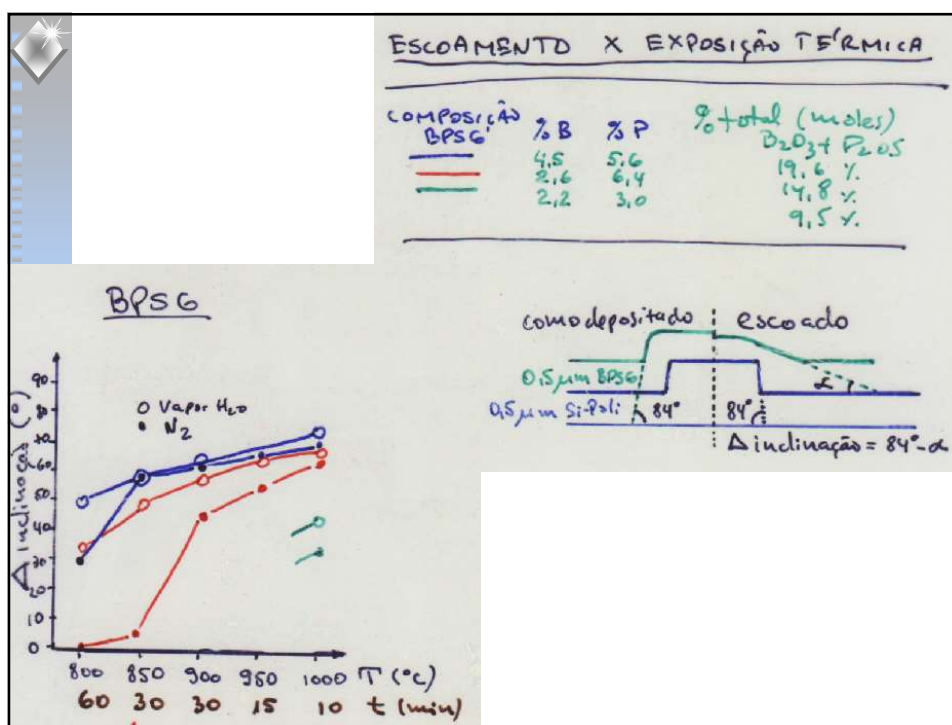 ESCOAMENTO X EXPOSIÇÃO TÉRMICA
COMPOSIÇÃO BPSG % B % P % total (moles) B2O3 + P2O5
4,5 5,6 19,6 %
2,6 6,4 14,8 %
2,2 3,0 9,5 %
BPSG
como depositado escoado
0,5 µm BPSG
0,5 µm Si-Poli 84° 84° α
Δ inclinação = 84° - α
Δ inclinação (°)
90
80
70
60
50
40
30
20
10
0
o Vapor H2O
• N2
800 850 900 950 1000 T (°C)
60 30 30 15 10 t (min)